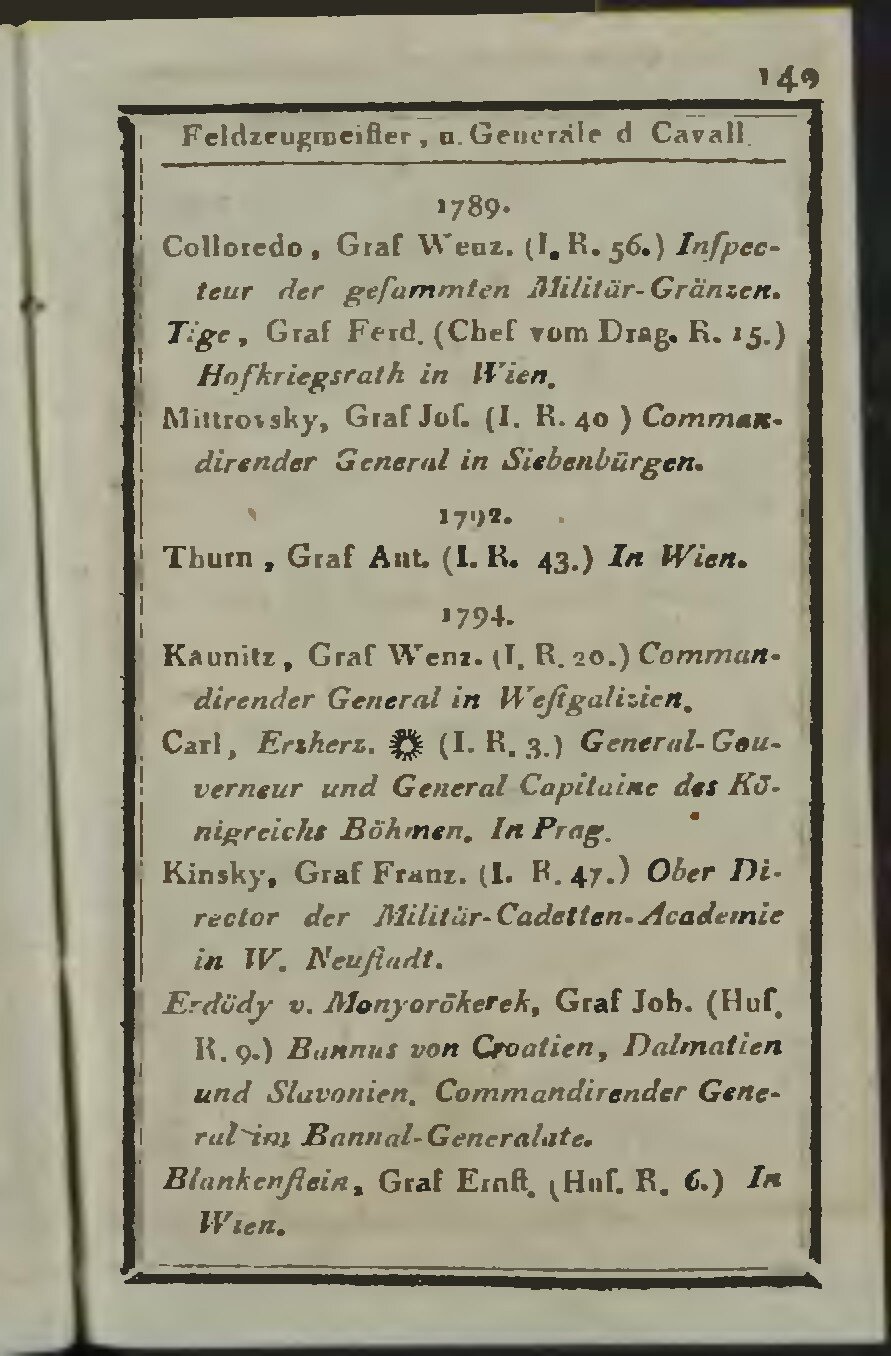 149
Feldzeugmeiſter, u. Generäle d Cavall.
1789.
Colloredo, Graf Wenz. (I. R. 56.) Inſpec-
teur der geſammten Militär-Gränzen.
Tige, Graf Ferd. (Chef vom Drag. R. 15.)
Hofkriegsrath in Wien.
Mittrovsky, Graf Joſ. (I. R. 40 ) Comman-
dirender General in Siebenbürgen.
1792.
Thurn, Graf Ant. (I. R. 43.) In Wien.
1794.
Kaunitz, Graf Wenz. (I. R. 20.) Comman-
dirender General in Weſtgalizien.
Carl, Erzherz. (I. R. 3.) General-Gou-
verneur und General Capitaine des Kö-
nigreichs Böhmen. In Prag.
Kinsky, Graf Franz. (I. R. 47.) Ober Di-
rector der Militär-Cadetten-Academie
in W. Neuſtadt.
Erdödy v. Monyorökerek, Graf Joh. (Huſ.
R. 9.) Bannus von Croatien, Dalmatien
und Slavonien. Commandirender Gene-
ral im Bannal-Generalate.
Blankenſtein, Graf Ernſt. (Huſ. R. 6.) In
Wien.